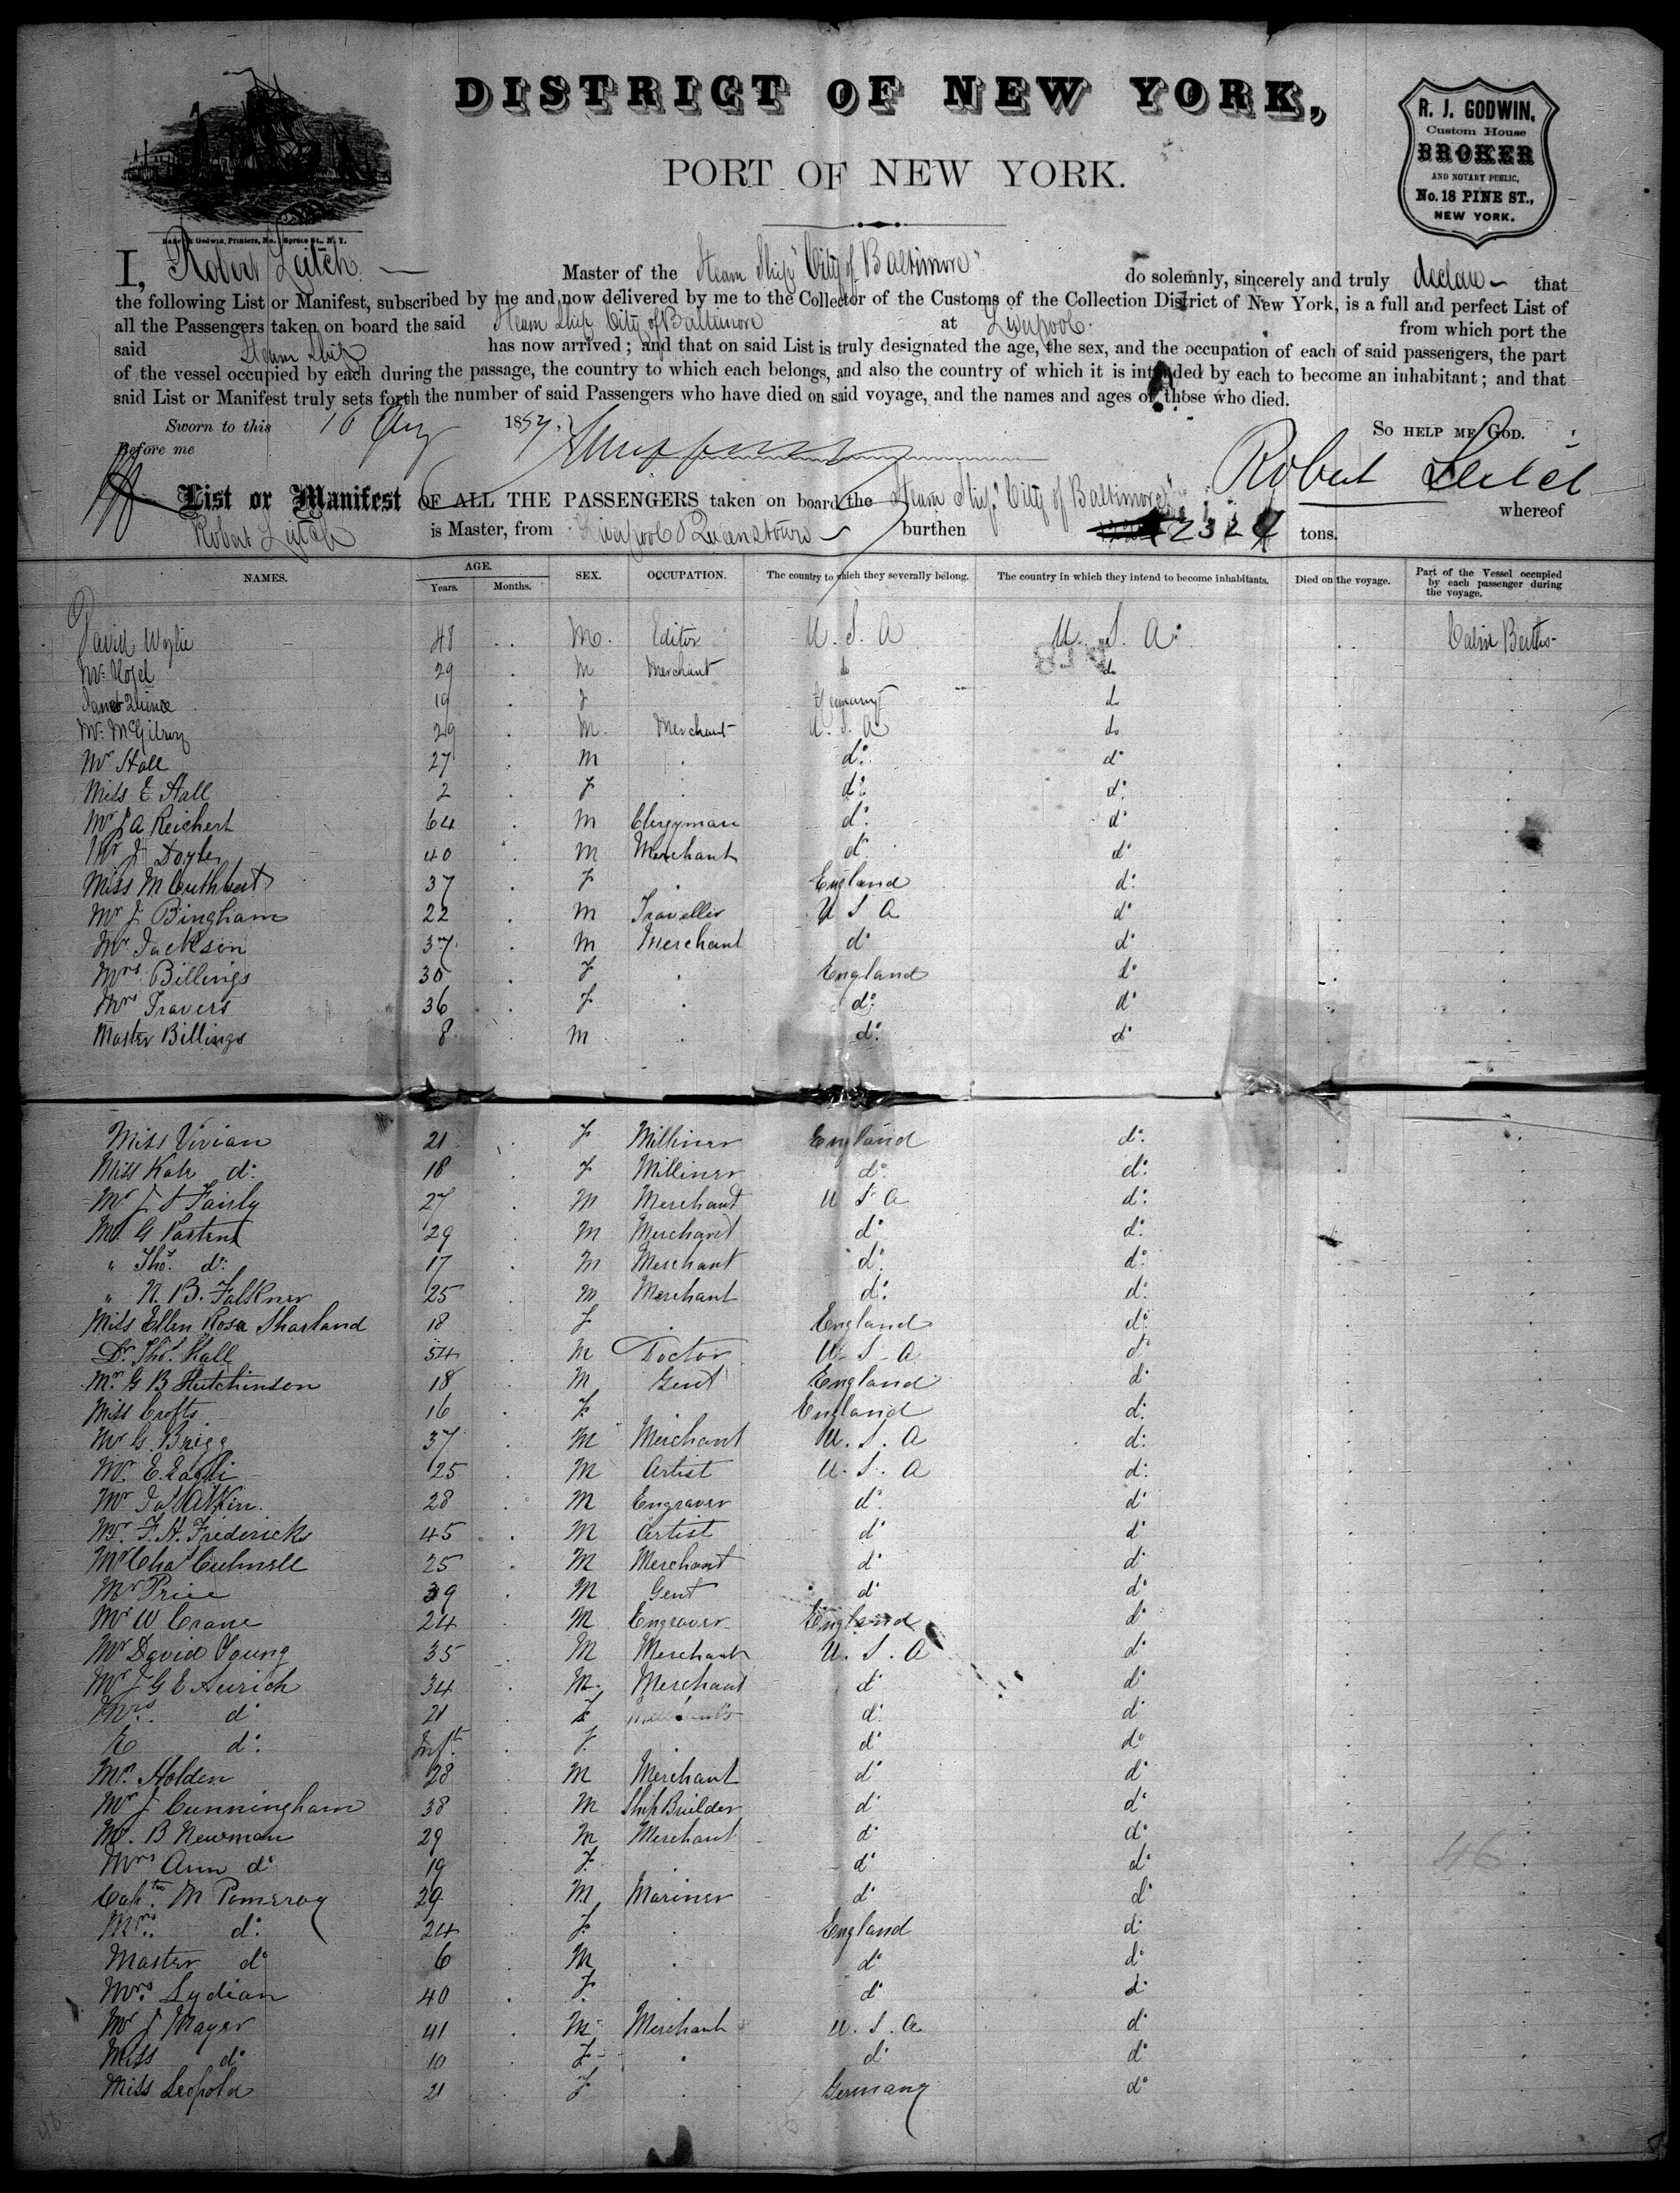 DISTRICT OF NEW YORK,
PORT OF NEW YORK.
R. J. GODWIN,
Custom House
BROKER
AND NOTARY PUBLIC,
No. 18 PINE ST.,
NEW YORK.
Baker & Godwin, Printers, No. 1 Spruce St., N. Y.
I, Robert Leitch Master of the Steam Ship "City of Baltimore" do solemnly, sincerely and truly declare that
the following List or Manifest, subscribed by me and now delivered by me to the Collector of the Customs of the Collection District of New York, is a full and perfect List of
all the Passengers taken on board the said Steam Ship City of Baltimore at Liverpool from which port the
said Steam Ship has now arrived; and that on said List is truly designated the age, the sex, and the occupation of each of said passengers, the part
of the vessel occupied by each during the passage, the country to which each belongs, and also the country of which it is intended by each to become an inhabitant; and that
said List or Manifest truly sets forth the number of said Passengers who have died on said voyage, and the names and ages of those who died.
Sworn to this 16 Aug 1857. So HELP ME GOD.
Before me Robert Leitch
List or Manifest OF ALL THE PASSENGERS taken on board the Steam Ship "City of Baltimore" whereof
Robert Leitch is Master, from Liverpool & Queenstown burthen 2324 tons.
NAMES. AGE. Years. Months. SEX. OCCUPATION. The country to which they severally belong. The country in which they intend to become inhabitants. Died on the voyage. Part of the Vessel occupied by each passenger during the voyage.
David Wylie 48 M. Editor U. S. A U. S. A. Cabin Berths
Mr. 29 M Merchant do do
19 f Germany do
Mr. McGilroy 29 M. Merchant U. S. A do
Mr Hall 27 M do do
Miss E Hall 2 f do do
Mr J A Reichert 64 M Clergyman do do
Mr J Doyle 40 M Merchant do do
Miss M Cuthbert 37 f England do
Mr J Bingham 22 M Traveller U S A do
Mr Jackson 37 M Merchant do do
Mrs Billings 30 f England do
Mrs Travers 36 f do do
Master Billings 8 M do do
Miss Vivian 21 f Milliner England do
Miss Kate do 18 f Milliner do do
Mr J S Fairly 27 M Merchant U S A do
Mr. G 29 M Merchant do do
" Thos. do 17 M Merchant do do
" N. B. Falkner 25 M Merchant do do
Miss Ellen Rosa Sharland 18 f England do
Dr. Thos. Hall 54 M Doctor U. S. A do
Mr. G B Hutchinson 18 M Gent England do
Miss Crofts 16 f England do
Mr G. Brigg 37 M Merchant U. S. A do
Mr. E. 25 M Artist U. S. A do
Mr Jas Atkin. 28 M Engraver do do
Mr. F. H. Fredericks 45 M Artist do do
Mr Chas 25 M Merchant do do
Mr Price 39 M Gent do do
Mr W Crane 24 M Engraver England do
Mr David Young 35 M Merchant U. S. A do
Mr J G E Aurich 34 M. Merchant do do
Mrs. do 21 f do do
E do. Inft. f. do do
Mr. Holden 28 M Merchant do do
Mr J Cunningham 38 M Ship Builder do do
Mr. B Newman 29 M Merchant do do
Mrs Ann do 19 f. do do
Captn. M Pomeroy 29 M Mariner do do 46
Mrs. do. 24 f. England do
Master do 6 M do do
Mrs. Lydian 40 f. do do
Mr J Mayer 41 M Merchant U. S. A do
Miss do 10 f do do
Miss Leopold 21 f Germany do